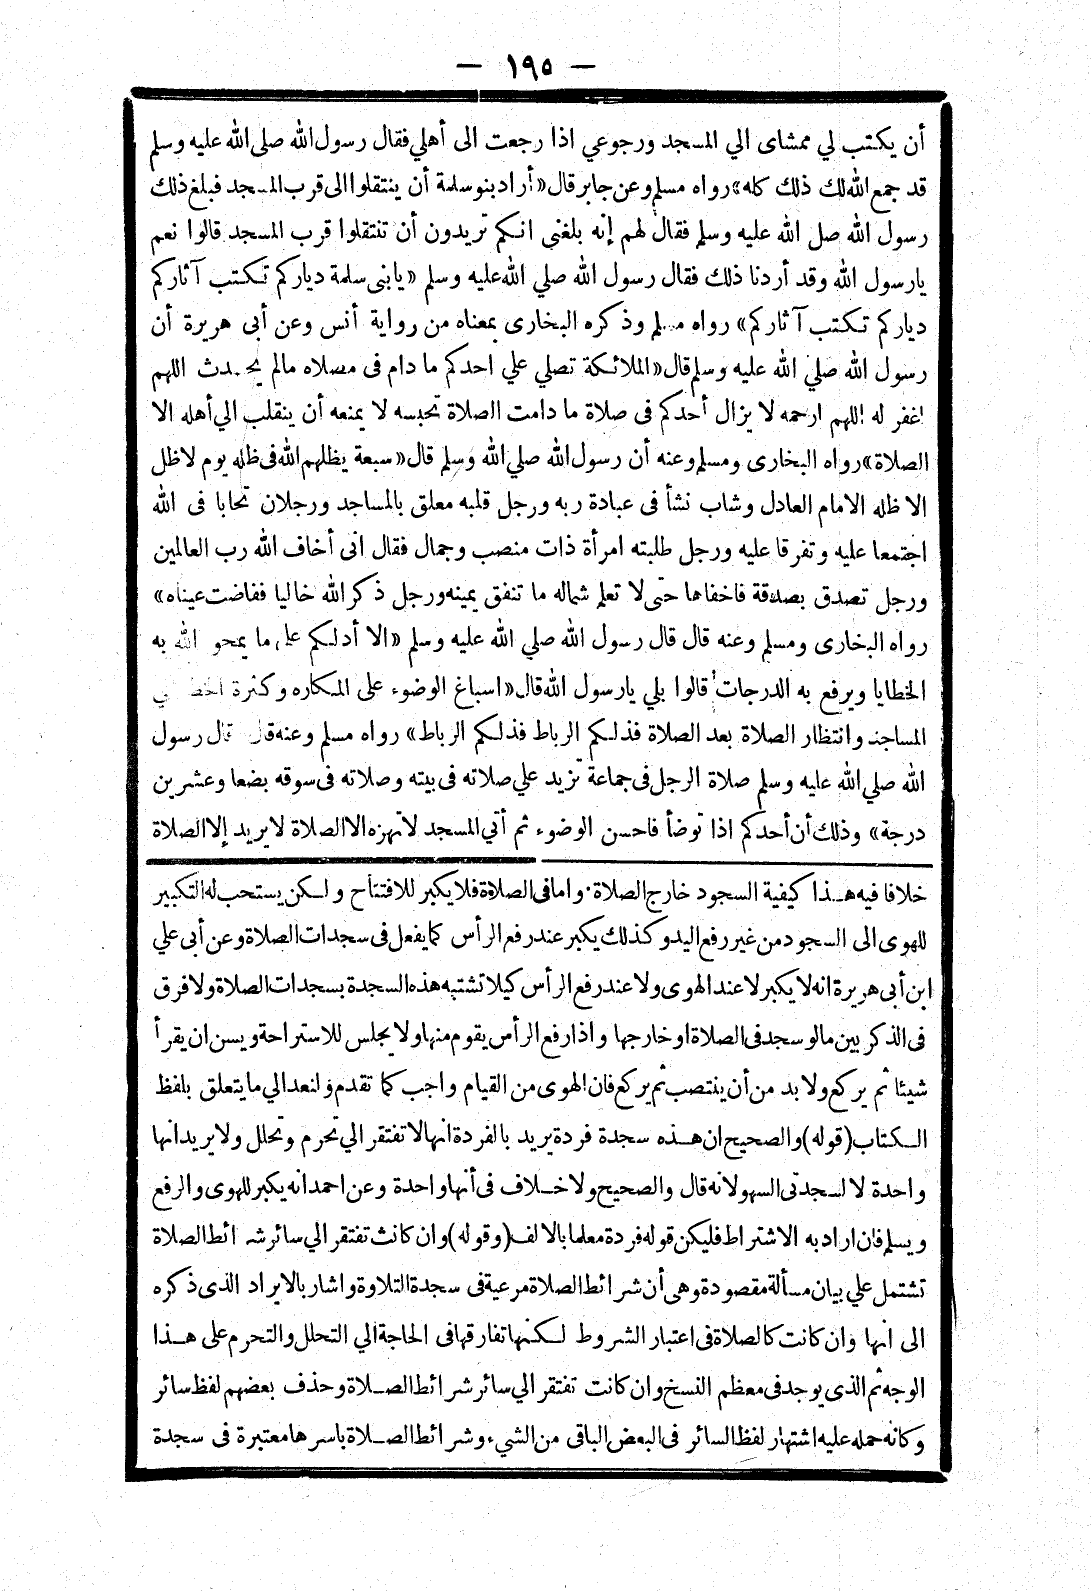 — ١٩٥ —
أن يكتب لي ممشاى الي المسجد ورجوعي اذا رجعت الى أهلي فقال رسول الله صلى الله عليه وسلم
قد جمع الله لك ذلك كله» رواه مسلم وعن جابر قال «أراد بنو سلمة أن ينتقلوا الى قرب المسجد فبلغ ذلك
رسول الله صل الله عليه وسلم فقال لهم إنه بلغنى انكم تريدون أن تنتقلوا قرب المسجد قالوا نعم
يارسول الله وقد أردنا ذلك فقال رسول الله صلي الله عليه وسلم «يابنى سلمة دياركم تكتب آثاركم
دياركم تكتب آثاركم» رواه مسلم وذكره البخارى بمعناه من رواية أنس وعن أبى هريرة أن
رسول الله صلي الله عليه وسلم قال «الملائكة تصلي علي احدكم ما دام فى مصلاه مالم يحدث اللهم
اغفر له اللهم ارحمه لا يزال أحدكم فى صلاة ما دامت الصلاة تحبسه لا يمنعه أن ينقلب الي أهله الا
الصلاة» رواه البخارى ومسلم وعنه أن رسول الله صلي الله وسلم قال «سبعة يظلهم الله فى ظله يوم لا ظل
الا ظله الامام العادل وشاب نشأ فى عبادة ربه ورجل قلبه معلق بالمساجد ورجلان تحابا فى الله
اجتمعا عليه وتفرقا عليه ورجل طلبته امرأة ذات منصب وجمال فقال انى أخاف الله رب العالمين
ورجل تصدق بصدقة فاخفاها حتى لا تعلم شماله ما تنفق يمينه ورجل ذكر الله خاليا ففاضت عيناه»
رواه البخارى ومسلم وعنه قال قال رسول الله صلي الله عليه وسلم «الا أدلكم على ما يمحو الله به
الخطايا ويرفع به الدرجات قالوا بلي يارسول الله قال «اسباغ الوضوء على المكاره وكثرة الخطا الي
المساجد وانتظار الصلاة بعد الصلاة فذلكم الرباط فذلكم الرباط» رواه مسلم وعنه قال قال رسول
الله صلي الله عليه وسلم صلاة الرجل فى جماعة تزيد علي صلاته فى بيته وصلاته فى سوقه بضعا وعشرين
درجة» وذلك أن أحدكم اذا توضأ فاحسن الوضوء ثم أتي المسجد لا تنهزه الا الصلاة لا يريد إلا الصلاة
خلافا فيه هذا كيفية السجود خارج الصلاة . واما فى الصلاة فلا يكبر للافتتاح ولكن يستحب له التكبير
للهوى الى السجود من غير رفع اليد وكذلك يكبر عند رفع الرأس كما يفعل فى سجدات الصلاة وعن أبى علي
ابن أبى هريرة انه لا يكبر لا عند الهوى ولا عند رفع الرأس كيلا تشتبه هذه السجدة بسجدات الصلاة ولا فرق
فى الذكر بين مالو سجد فى الصلاة او خارجها واذا رفع الرأس يقوم منها ولا يجلس للاستراحة ويسن ان يقرأ
شيئا ثم يركع ولا بد من أن ينتصب ثم يركع فان الهوى من القيام واجب كما تقدم ولنعد الي ما يتعلق بلفظ
الكتاب (قوله) والصحيح ان هذه سجدة فردة يريد بالفردة انها لا تفتقر الي تحرم وتحلل ولا يريد انها
واحدة لا لسجدتى السهو لانه قال والصحيح ولا خلاف فى أنها واحدة وعن احمد انه يكبر للهوى والرفع
ويسلم فان اراد به الاشتراط فليكن قوله فردة معلما بالالف (وقوله) وان كانت تفتقر الي سائر شرائط الصلاة
تشتمل علي بيان مسألة مقصودة وهى أن شرائط الصلاة مرعية فى سجدة التلاوة واشار بالايراد الذى ذكره
الى انها وان كانت كالصلاة فى اعتبار الشروط لكنها تفارقها فى الحاجة الي التحلل والتحرم على هذا
الوجه ثم الذى يوجد فى معظم النسخ وان كانت تفتقر الي سائر شرائط الصلاة وحذف بعضهم لفظ سائر
وكانه حمله عليه اشتهار لفظ السائر فى البعض الباقى من الشيء وشرائط الصلاة باسرها معتبرة فى سجدة